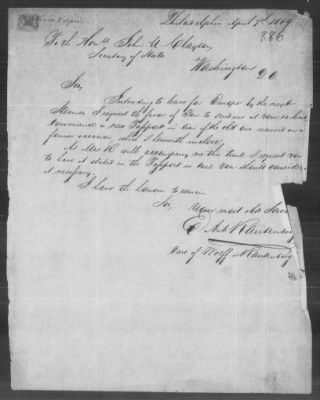 Philadelphia April 7th 1849
886
To the Honble John M Clayton
Secretary of State
Washington D C
Sir,
Intending to leave for Europe by the next
Steamer I request the favor of You to
a new Passport in lieu of the old one received on a
former occasion which I herewith enclose.
As Mrs K will accompany me this time I request you
to have it stated in the Passport in case you should consider
it necessary.
I have the honour to remain
Sir, Your most obt Servt
Care of Wolff &